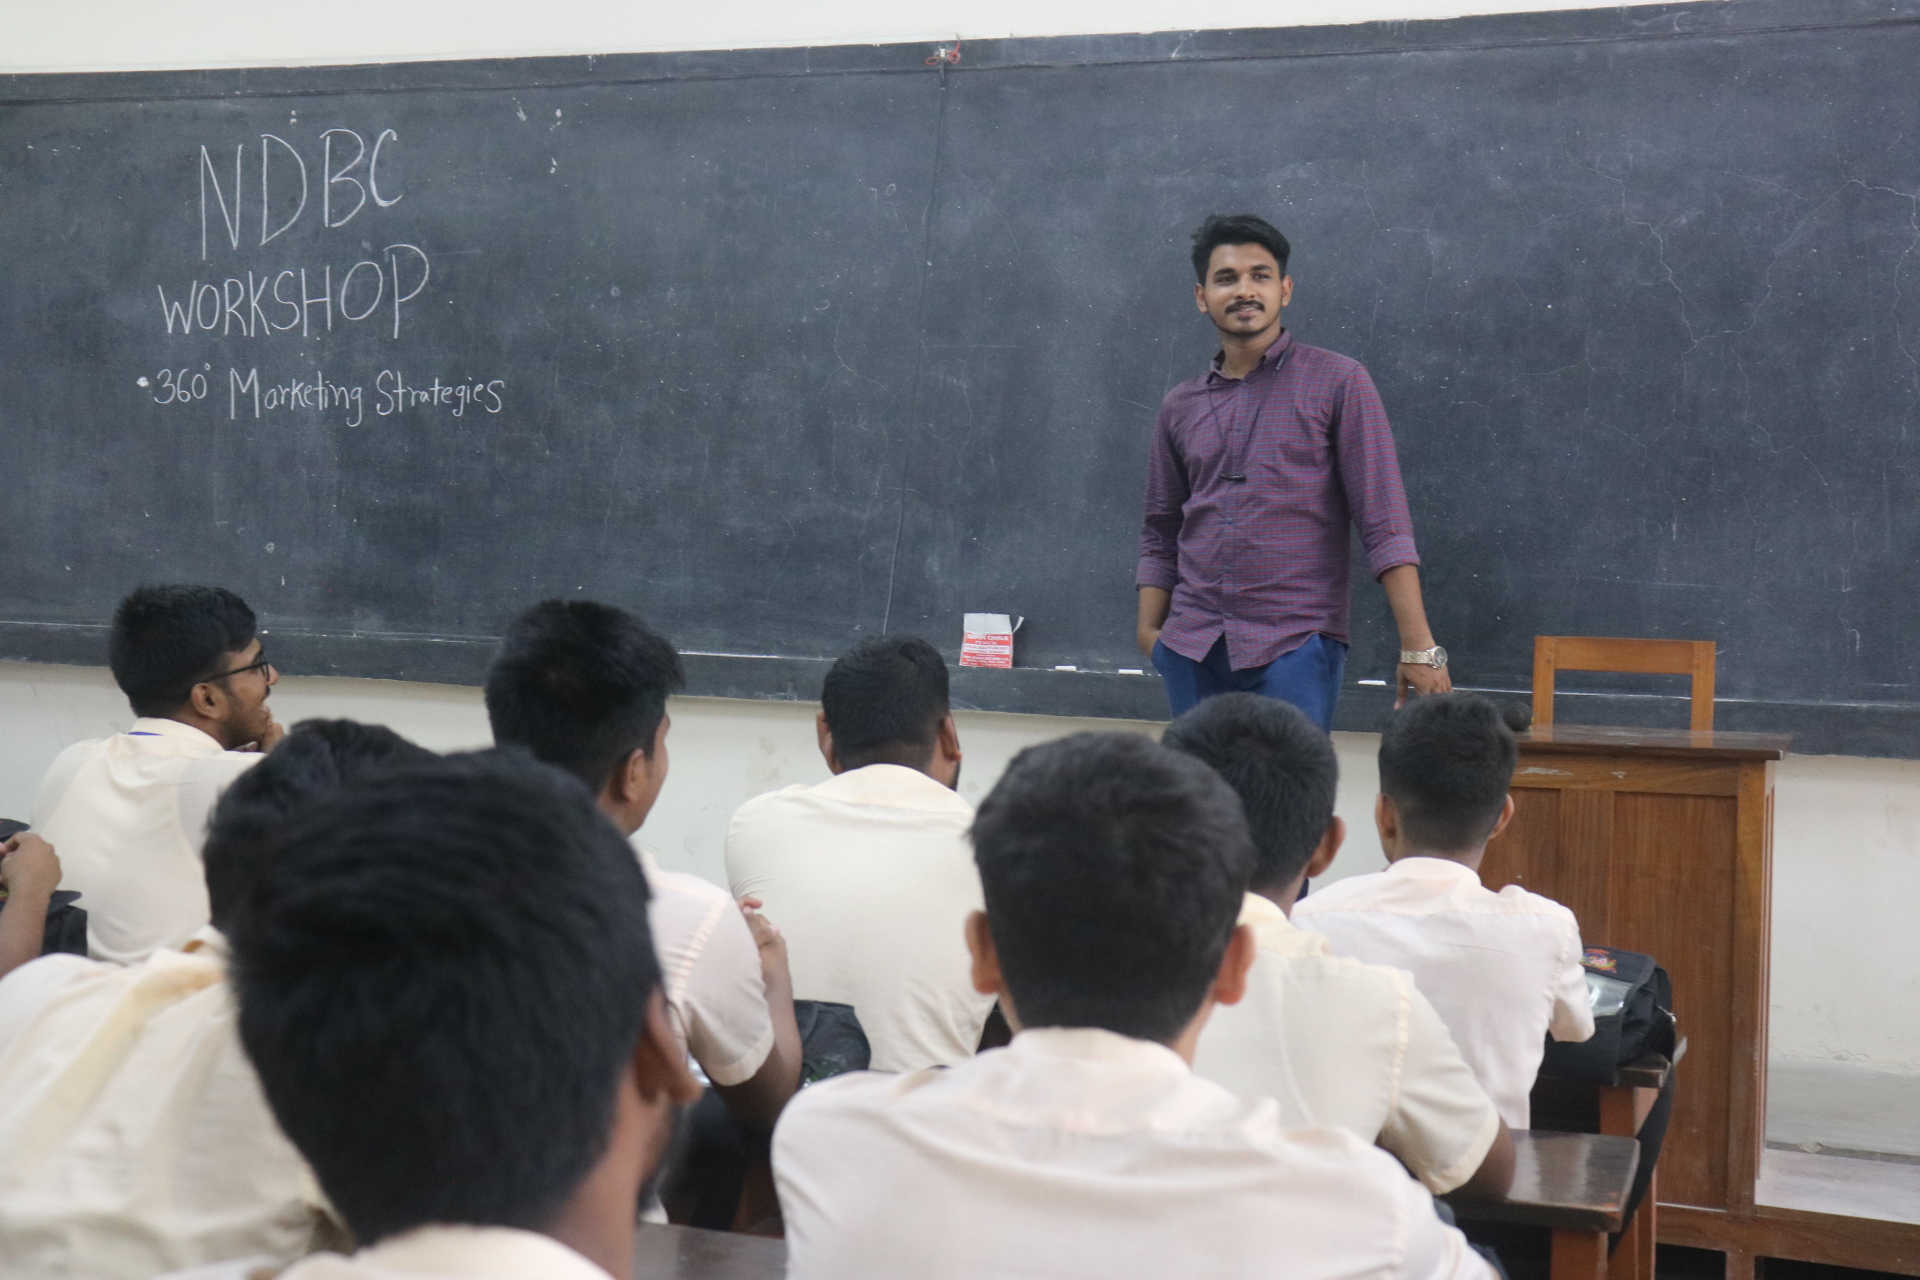 NDBC
WORKSHOP
• 360° Marketing Strategies